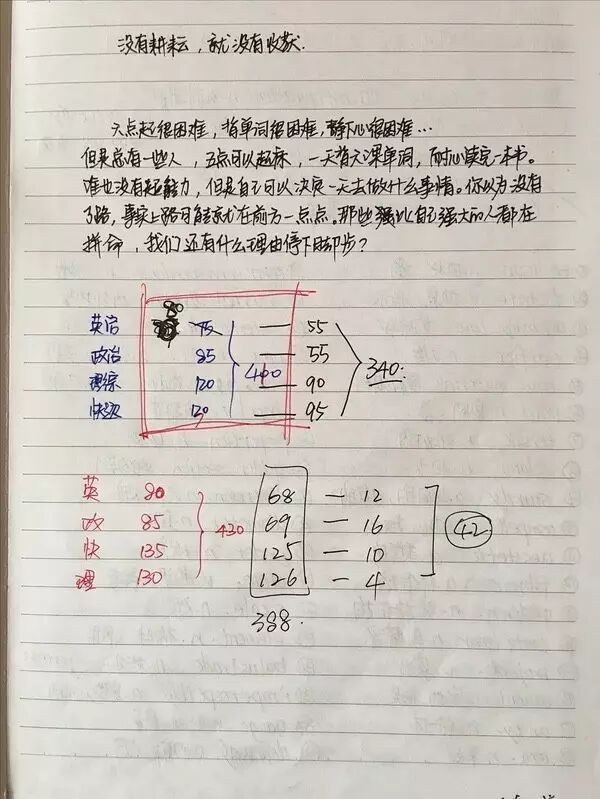 没有耕耘，就没有收获.
六点起很困难，背单词很困难，静下心很困难…
但是总有一些人，五点可以起床，一天背六课单词，耐心读完一本书。
谁也没有超能力，但是自己可以决定一天去做什么事情。你以为没有
了路，事实上路可能就在前方一点点。那些强比自己强大的人都在
拼命，我们还有什么理由停下脚步？
80
英语 75 — 55
政治 85 — 55
400 340.
理综 120 — 90
快设 120 — 95
英 80 68 — 12
政 85 69 — 16
430 42
快 135 125 — 10
理 130 126 — 4
388.